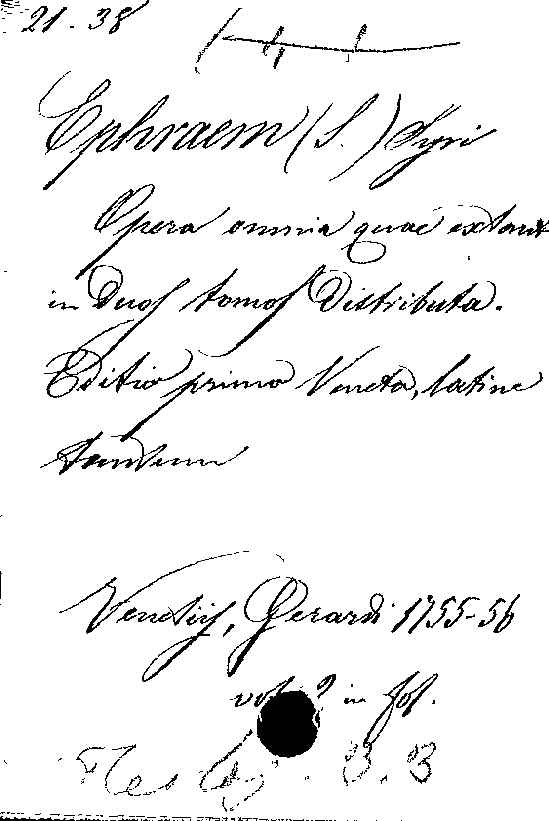 21. 38
Ephraem (S.) Syri
Opera omnia quae extant
in duos tomos distributa.
Editio prima Veneta, latine
tantum
Venetiis, Gerardi 1755-56
vol. 2 in fol.
3.3